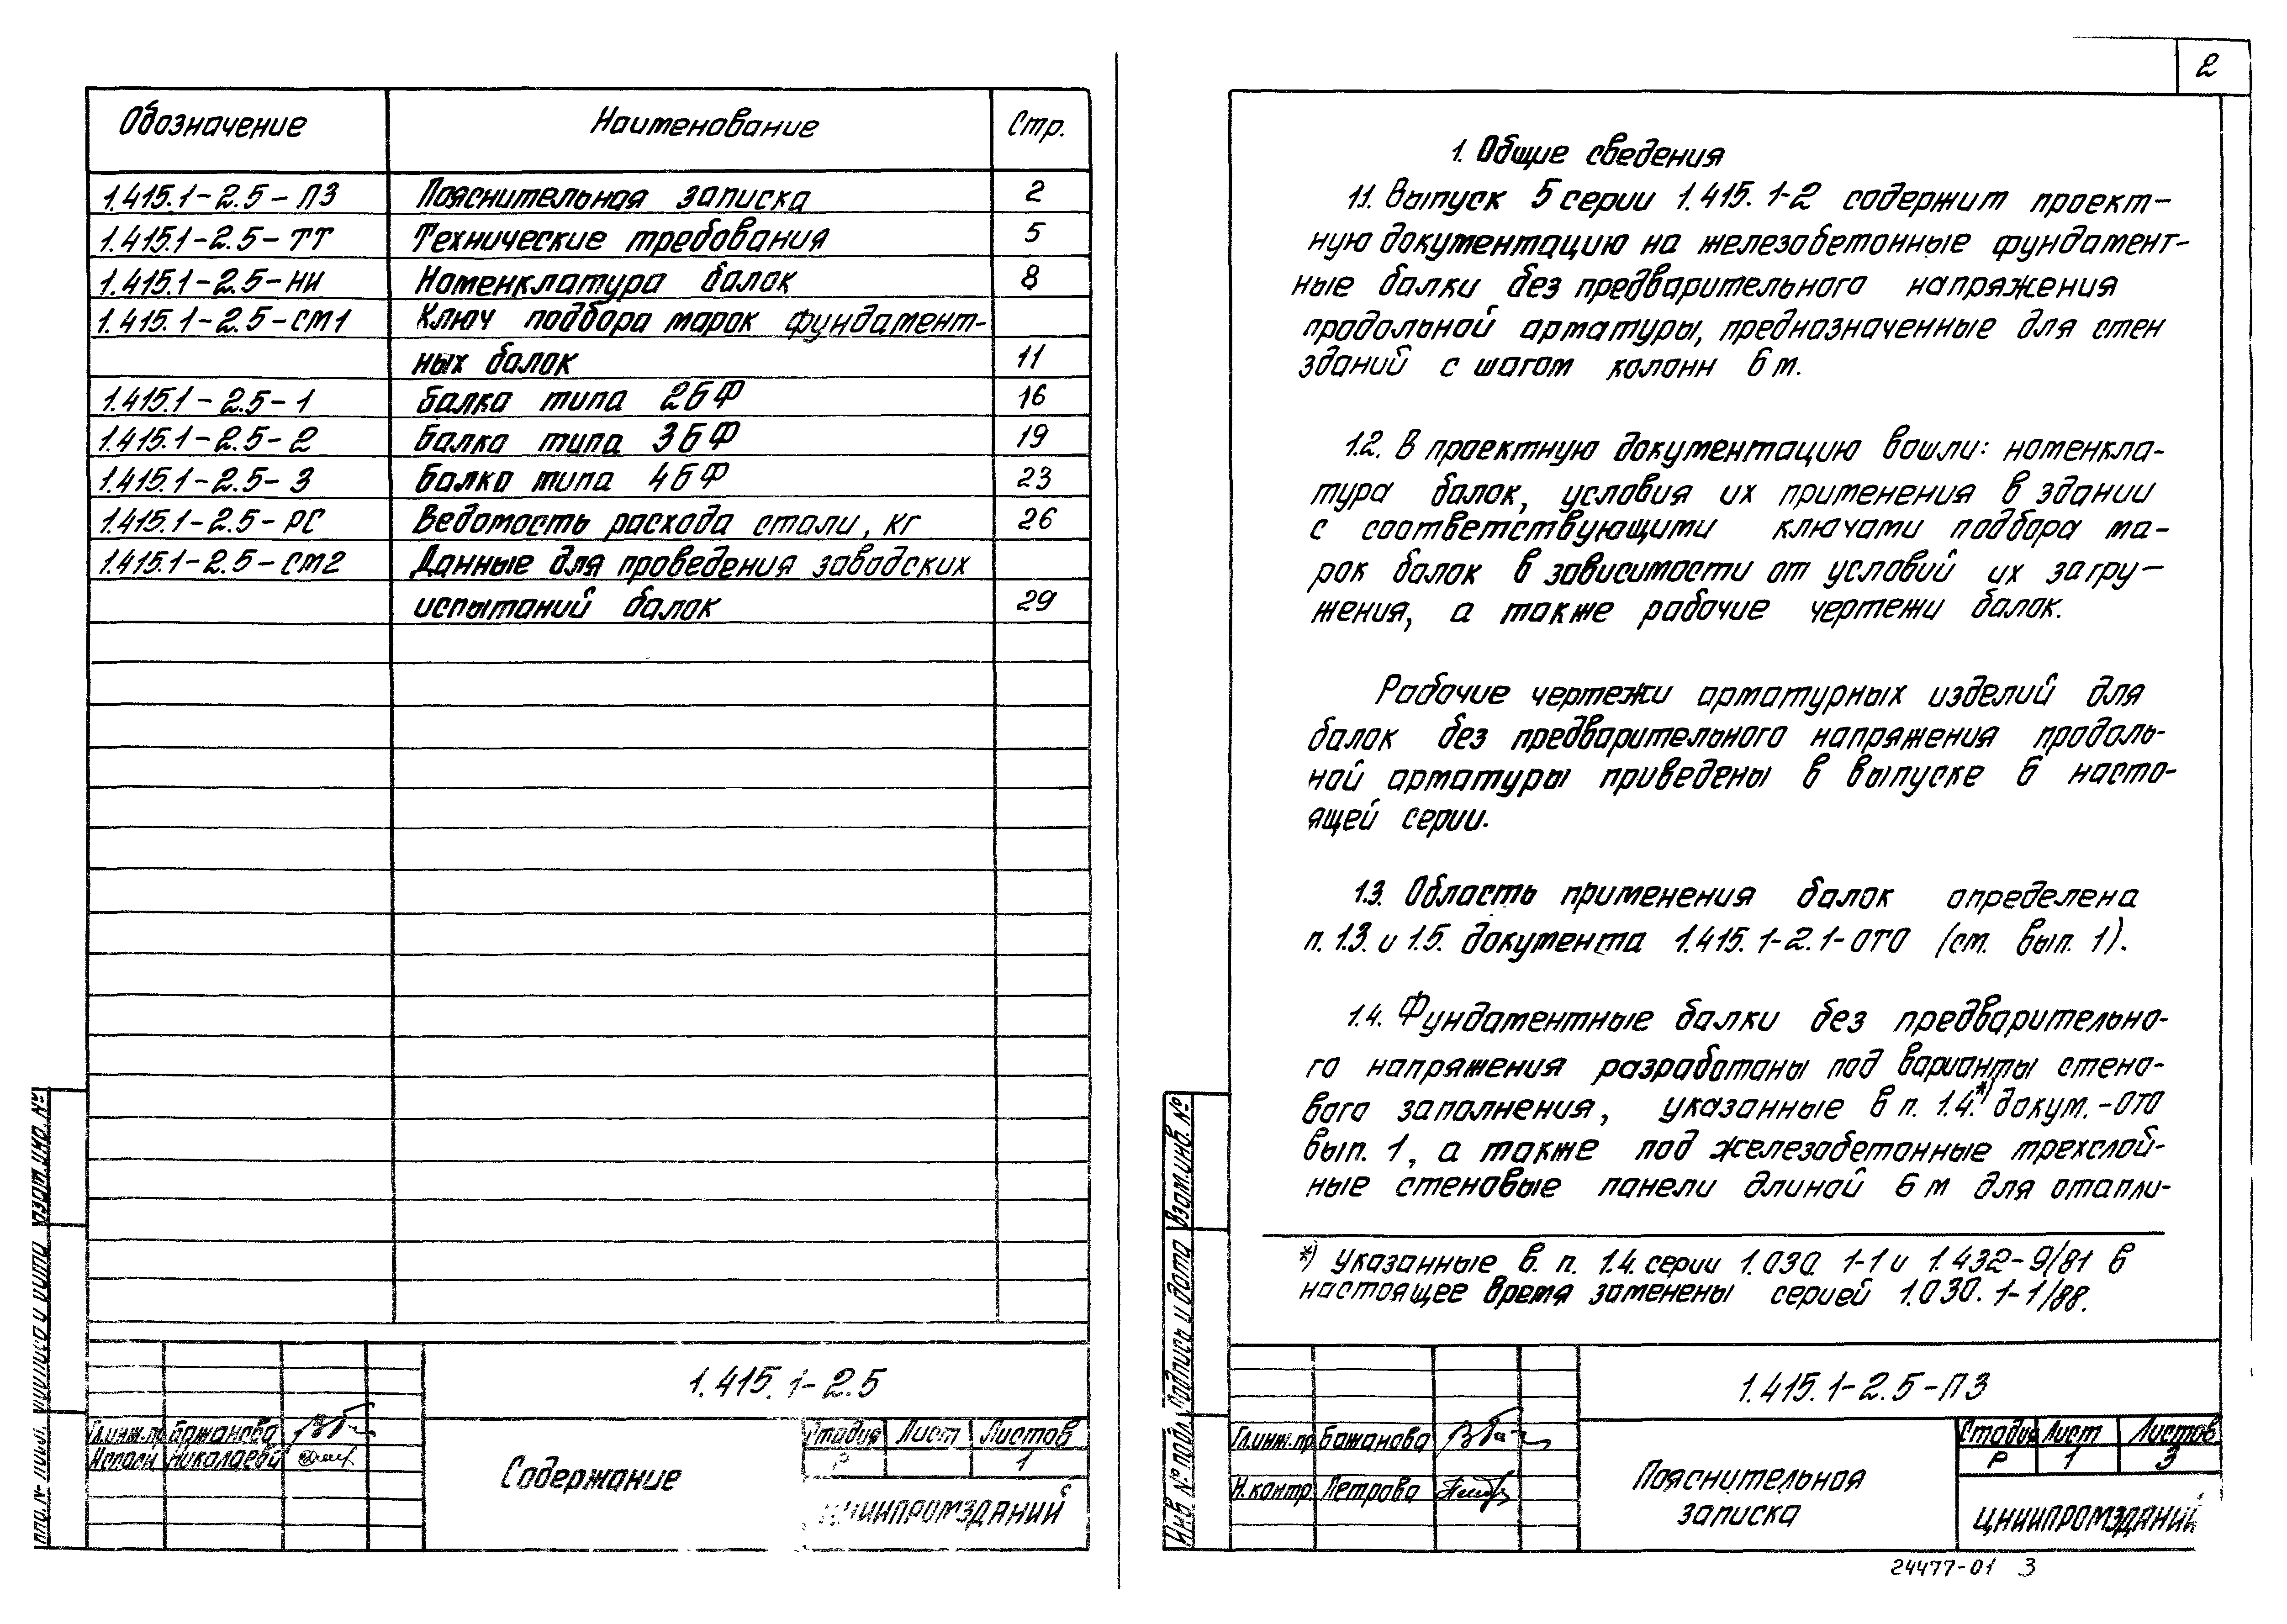 Обозначение Наименование Стр.
1.415.1-2.5-ПЗ Пояснительная записка 2
1.415.1-2.5-ТТ Технические требования 5
1.415.1-2.5-НИ Номенклатура балок 8
1.415.1-2.5-СМ1 Ключ подбора марок фундамент-
ных балок 11
1.415.1-2.5-1 Балка типа 2БФ 16
1.415.1-2.5-2 Балка типа 3БФ 19
1.415.1-2.5-3 Балка типа 4БФ 23
1.415.1-2.5-РС Ведомость расхода стали, кг 26
1.415.1-2.5-СМ2 Данные для проведения заводских
испытаний балок 29
1.415.1-2.5
Гл.инж.пр Бажанова
Николаева
Содержание
Стадия Лист Листов
Р 1
ЦНИИПРОМЗДАНИЙ
Взам.инв.№
2
1. Общие сведения
1.1. Выпуск 5 серии 1.415.1-2 содержит проект-
ную документацию на железобетонные фундамент-
ные балки без предварительного напряжения
продольной арматуры, предназначенные для стен
зданий с шагом колонн 6 м.
1.2. В проектную документацию вошли: номенкла-
тура балок, условия их применения в здании
с соответствующими ключами подбора ма-
рок балок в зависимости от условий их загру-
жения, а также рабочие чертежи балок.
Рабочие чертежи арматурных изделий для
балок без предварительного напряжения продоль-
ной арматуры приведены в выпуске 6 насто-
ящей серии.
1.3. Область применения балок определена
п. 1.3. и 1.5. документа 1.415.1-2.1-ОТО (см. вып. 1).
1.4. Фундаментные балки без предварительно-
го напряжения разработаны под варианты стено-
вого заполнения, указанные в п. 1.4.*) докум.-ОТО
вып. 1, а также под железобетонные трехслой-
ные стеновые панели длиной 6 м для отапли-
*) Указанные в. п. 1.4. серии 1.030. 1-1 и 1.432-9/81 в
настоящее время заменены серией 1.030.1-1/88.
1.415.1-2.5-ПЗ
Гл.инж.пр Бажанова
Н.контр Петрова
Пояснительная
записка
Стадия Лист Листов
Р 1 3
ЦНИИПРОМЗДАНИЙ
Инв № подл. Подпись и дата Взам.инв.№
24477-01 3